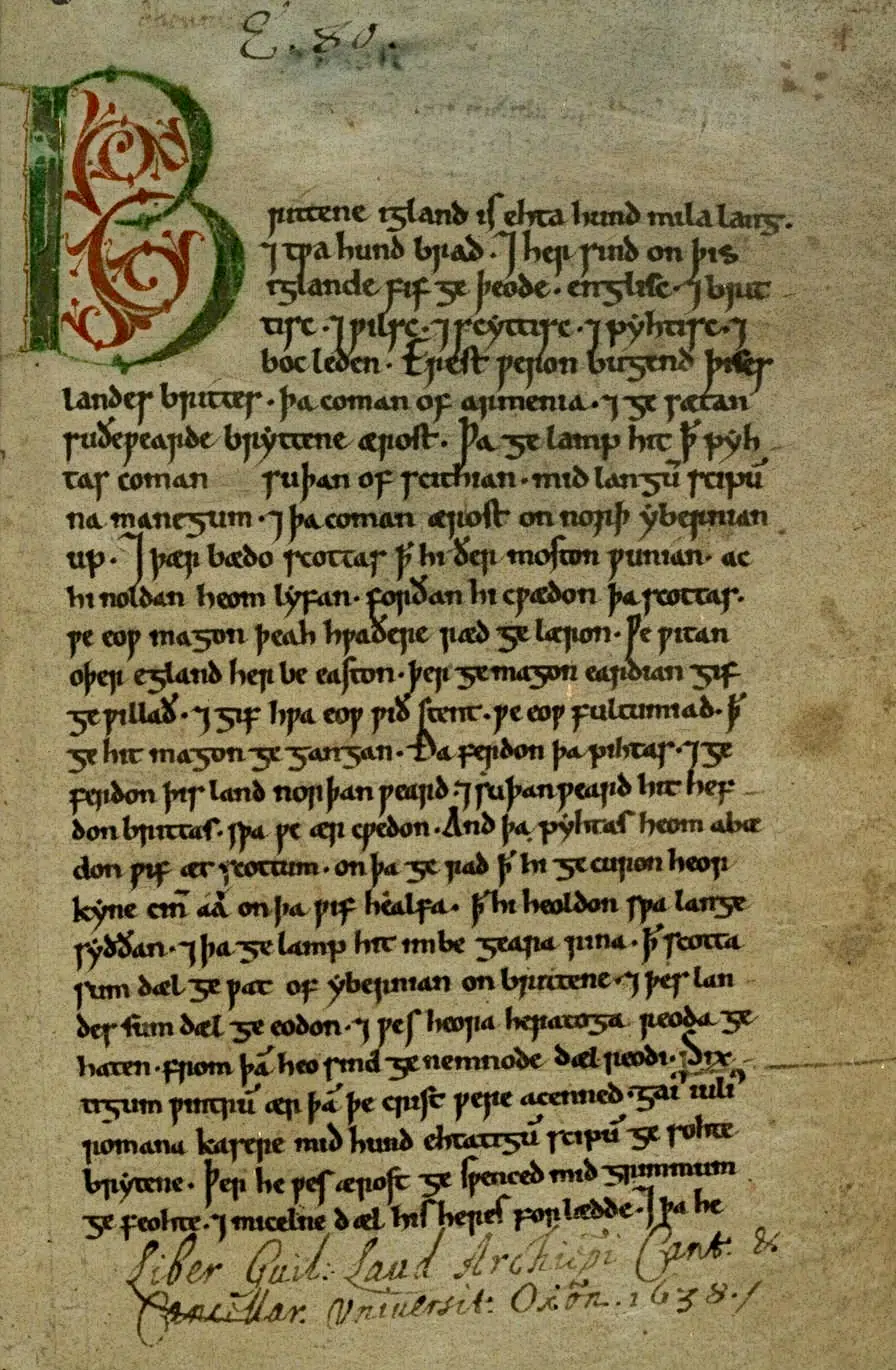 E. 80.
Brittene igland is ehta hund mila lang.
⁊ tƿa hund brad. ⁊ her sind on þis
iglande fif ge þeode. englisc. ⁊ brit
tisc. ⁊ ƿilsc. ⁊ scyttisc. ⁊ pyhtisc. ⁊
boc leden. Erest ƿeron bugend þises
landes brittes. þa coman of armenia. ⁊ ge sætan
suðeƿearde bryttene ærost. Þa ge lamp hit ꝥ pyh
tas coman suþan of scithian. mid langū scipū
na manegum. ⁊ þa coman ærost on norþ ybernian
up. ⁊ þær bædo scottas ꝥ hi ðer moston ƿunian. ac
hi noldan heom lyfan. forðan hi cƿædon þa scottas.
ƿe eoƿ magon þeah hƿaðere ræd ge læron. Ƿe ƿitan
oþer egland her be easton. þer ge magon eardian gif
ge ƿillað. ⁊ gif hƿa eoƿ ƿið stent. ƿe eoƿ fultumiad. ꝥ
ge hit magon ge gangan. Ða ferdon þa pihtas. ⁊ ge
ferdon þis land norþan ƿeard. ⁊ suþan ƿeard hit hef
don brittas. sƿa ƿe ær cƿedon. And þa pyhtas heom abæ
don ƿif æt scottum. on þa ge rad ꝥ hi ge curon heor
kyne cīn aā on þa ƿif healfa. ꝥ hi heoldon sƿa lange
syððan. ⁊ þa ge lamp hit imbe geara rina. ꝥ scotta
sum dæl ge ƿat of ybernian on brittene. ⁊ þes lan
des sum dæl ge eodon. ⁊ ƿes heora heratoga reoda ge
haten. from þā heo sind ge nemnode dæl reodi. Six
tigum ƿintrū ær þā þe crist ƿere acenned. gai' iuli'
romana kasere mid hund ehtatigū scipū ge sohte
brytene. Þer he ƿes ærost ge sƿenced mid grimmum
ge feohte. ⁊ micelne dæl his heres forlædde. ⁊ þa he
Liber Guil: Laud Archiepi Cant: &
Cancellar. Universit: Oxon. 1638.